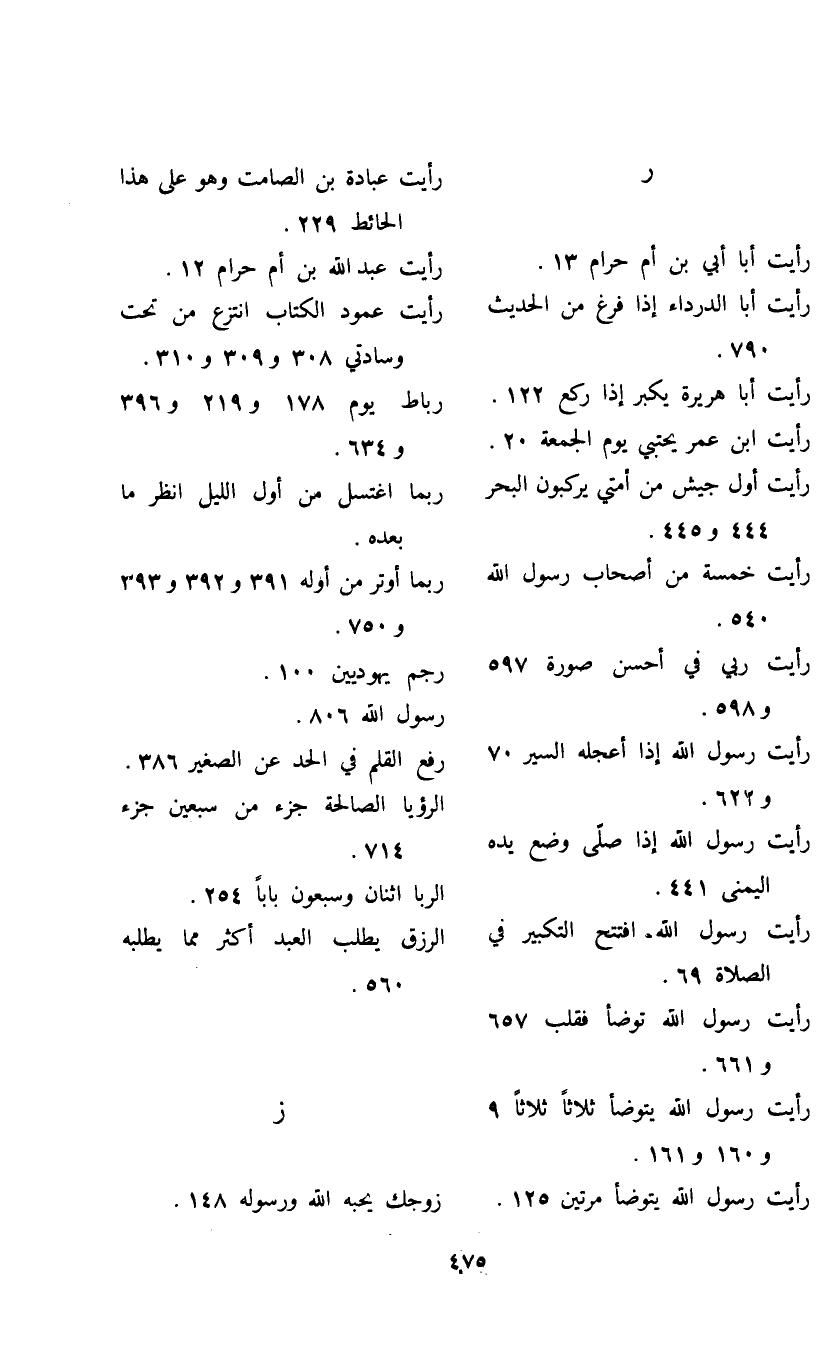 ر
رأيت أبا أبي بن أم حرام ١٣ .
رأيت أبا الدرداء إذا فرغ من الحديث
٧٩٠ .
رأيت أبا هريرة يكبر إذا ركع ١٢٢ .
رأيت ابن عمر يحتبي يوم الجمعة ٢٠ .
رأيت أول جيش من أمتي يركبون البحر
٤٤٤ و ٤٤٥ .
رأيت خمسة من أصحاب رسول الله
٥٤٠ .
رأيت ربي في أحسن صورة ٥٩٧
و ٥٩٨ .
رأيت رسول الله إذا أعجله السير ٧٠
و ٦٢٢ .
رأيت رسول الله إذا صلّى وضع يده
اليمنى ٤٤١ .
رأيت رسول الله افتتح التكبير في
الصلاة ٦٩ .
رأيت رسول الله توضأ فقلب ٦٥٧
و ٦٦١ .
رأيت رسول الله يتوضأ ثلاثاً ثلاثاً ٩
و ١٦٠ و ١٦١ .
رأيت رسول الله يتوضأ مرتين ١٢٥ .
رأيت عبادة بن الصامت وهو على هذا
الحائط ٢٢٩ .
رأيت عبد الله بن أم حرام ١٢ .
رأيت عمود الكتاب انتزع من تحت
وسادتي ٣٠٨ و ٣٠٩ و ٣١٠ .
رباط يوم ١٧٨ و ٢١٩ و ٣٩٦
و ٦٣٤ .
ربما اغتسل من أول الليل انظر ما
بعده .
ربما أوتر من أوله ٣٩١ و ٣٩٢ و ٣٩٣
و ٧٥٠ .
رجم يهوديين ١٠٠ .
رسول الله ٨٠٦ .
رفع القلم في الحد عن الصغير ٣٨٦ .
الرؤيا الصالحة جزء من سبعين جزء
٧١٤ .
الربا اثنان وسبعون باباً ٢٥٤ .
الرزق يطلب العبد أكثر مما يطلبه
٥٦٠ .
ز
زوجك يحبه الله ورسوله ١٤٨ .
٤٧٥